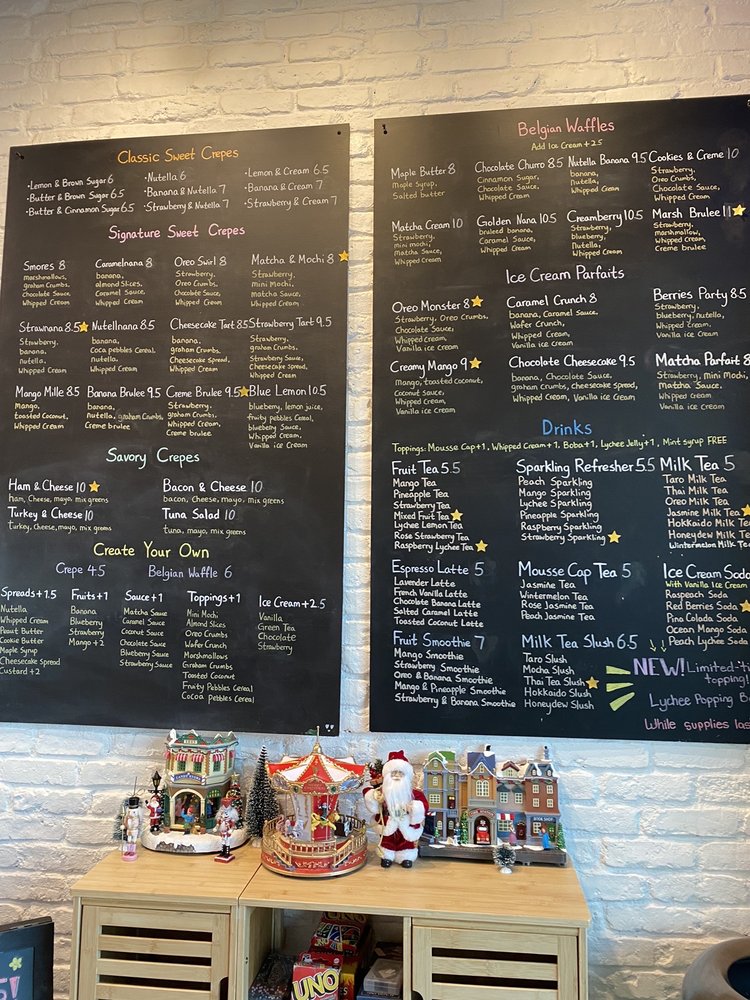 Classic Sweet Crepes
•Lemon & Brown Sugar 6
•Butter & Brown Sugar 6.5
•Butter & Cinnamon Sugar 6.5
•Nutella 6
•Banana & Nutella 7
•Strawberry & Nutella 7
•Lemon & Cream 6.5
•Banana & Cream 7
•Strawberry & Cream 7
Signature Sweet Crepes
Smores 8
marshmallows,
graham Crumbs,
Chocolate Sauce,
Whipped Cream
Caramelnana 8
banana,
almond Slices,
Caramel Sauce,
Whipped Cream
Oreo Swirl 8
Strawberry,
Oreo Crumbs,
Chocolate Sauce,
Whipped Cream
Matcha & Mochi 8
Strawberry,
mini Mochi,
matcha Sauce,
Whipped Cream
Strawnana 8.5
Strawberry,
banana,
nutella,
Whipped Cream
Nutellnana 8.5
banana,
Coca pebbles Cereal,
nutella,
Whipped Cream
Cheesecake Tart 8.5
banana,
graham Crumbs,
Cheesecake Spread,
Whipped Cream
Strawberry Tart 9.5
Strawberry,
graham Crumbs,
Strawberry Sauce,
Cheesecake Spread,
Whipped Cream
Mango Mille 8.5
Mango,
toasted Coconut,
Whipped Cream
Banana Brulee 9.5
banana,
nutella, graham Crumbs,
Creme brulee
Creme Brulee 9.5
Strawberry,
graham Crumbs,
Whipped Cream,
Creme brulee
Blue Lemon 10.5
blueberry, lemon juice,
fruity pebbles Cereal,
blueberry Sauce,
Whipped Cream,
Vanilla ice Cream
Savory Crepes
Ham & Cheese 10
ham, Cheese, mayo, mix greens
Turkey & Cheese 10
turkey, Cheese, mayo, mix greens
Bacon & Cheese 10
bacon, Cheese, mayo, mix greens
Tuna Salad 10
tuna, mayo, mix greens
Create Your Own
Crepe 4.5
Belgian Waffle 6
Spreads +1.5
Nutella
Whipped Cream
Peanut Butter
Cookie Butter
Maple Syrup
Cheesecake Spread
Custard +2
Fruits +1
Banana
Blueberry
Strawberry
Mango +2
Sauce +1
Matcha Sauce
Caramel Sauce
Coconut Sauce
Chocolate Sauce
Blueberry Sauce
Strawberry Sauce
Toppings +1
Mini Mochi
Almond Slices
Oreo Crumbs
Wafer Crunch
Marshmallows
Graham Crumbs
Toasted Coconut
Fruity Pebbles Cereal
Cocoa Pebbles Cereal
Ice Cream +2.5
Vanilla
Green Tea
Chocolate
Strawberry
Belgian Waffles
Add Ice Cream +2.5
Maple Butter 8
Maple Syrup,
Salted butter
Chocolate Churro 8.5
Cinnamon Sugar,
Chocolate Sauce,
Whipped Cream
Nutella Banana 9.5
banana,
nutella,
Whipped Cream
Cookies & Creme 10
Strawberry,
Oreo Crumbs,
Chocolate Sauce,
Whipped Cream
Matcha Cream 10
Strawberry,
mini mochi,
matcha Sauce,
Whipped Cream
Golden Nana 10.5
bruleed banana,
Caramel Sauce,
Whipped Cream
Creamberry 10.5
Strawberry,
blueberry,
Nutella,
Whipped Cream
Marsh Brulee 11
Strawberry,
marshmallow,
Whipped Cream,
Creme brulee
Ice Cream Parfaits
Oreo Monster 8
Strawberry, Oreo Crumbs,
Chocolate Sauce,
Whipped Cream,
Vanilla ice Cream
Caramel Crunch 8
banana, Caramel Sauce,
Wafer Crunch,
Whipped Cream,
Vanilla ice Cream
Berries Party 8.5
Strawberry,
blueberry, nutella,
Whipped Cream,
Vanilla ice Cream
Creamy Mango 9
Mango, toasted Coconut,
Coconut Sauce,
Whipped Cream,
Vanilla ice Cream
Chocolate Cheesecake 9.5
banana, Chocolate Sauce,
graham Crumbs, Cheesecake Spread,
Whipped Cream, Vanilla ice Cream
Matcha Parfait 8
Strawberry, mini Mochi,
Matcha Sauce,
Whipped Cream,
Vanilla ice Cream
Drinks
Toppings: Mousse Cap +1, Whipped Cream +1, Boba +1, Lychee Jelly +1, Mint Syrup FREE
Fruit Tea 5.5
Mango Tea
Pineapple Tea
Strawberry Tea
Mixed Fruit Tea
Lychee Lemon Tea
Rose Strawberry Tea
Raspberry Lychee Tea
Sparkling Refresher 5.5
Peach Sparkling
Mango Sparkling
Lychee Sparkling
Pineapple Sparkling
Raspberry Sparkling
Strawberry Sparkling
Milk Tea 5
Taro Milk Tea
Thai Milk Tea
Oreo Milk Tea
Jasmine Milk Tea
Hokkaido Milk Tea
Honeydew Milk Tea
Wintermelon Milk Tea
Espresso Latte 5
Lavender Latte
French Vanilla Latte
Chocolate Banana Latte
Salted Caramel Latte
Toasted Coconut Latte
Mousse Cap Tea 5
Jasmine Tea
Wintermelon Tea
Rose Jasmine Tea
Peach Jasmine Tea
Ice Cream Soda
With Vanilla Ice Cream
Raspeach Soda
Red Berries Soda
Pina Colada Soda
Ocean Mango Soda
Peach Lychee Soda
Fruit Smoothie 7
Mango Smoothie
Strawberry Smoothie
Oreo & Banana Smoothie
Mango & Pineapple Smoothie
Strawberry & Banana Smoothie
Milk Tea Slush 6.5
Taro Slush
Mocha Slush
Thai Tea Slush
Hokkaido Slush
Honeydew Slush
NEW! Limited-ti
topping!
Lychee Popping B
While supplies las
UNO